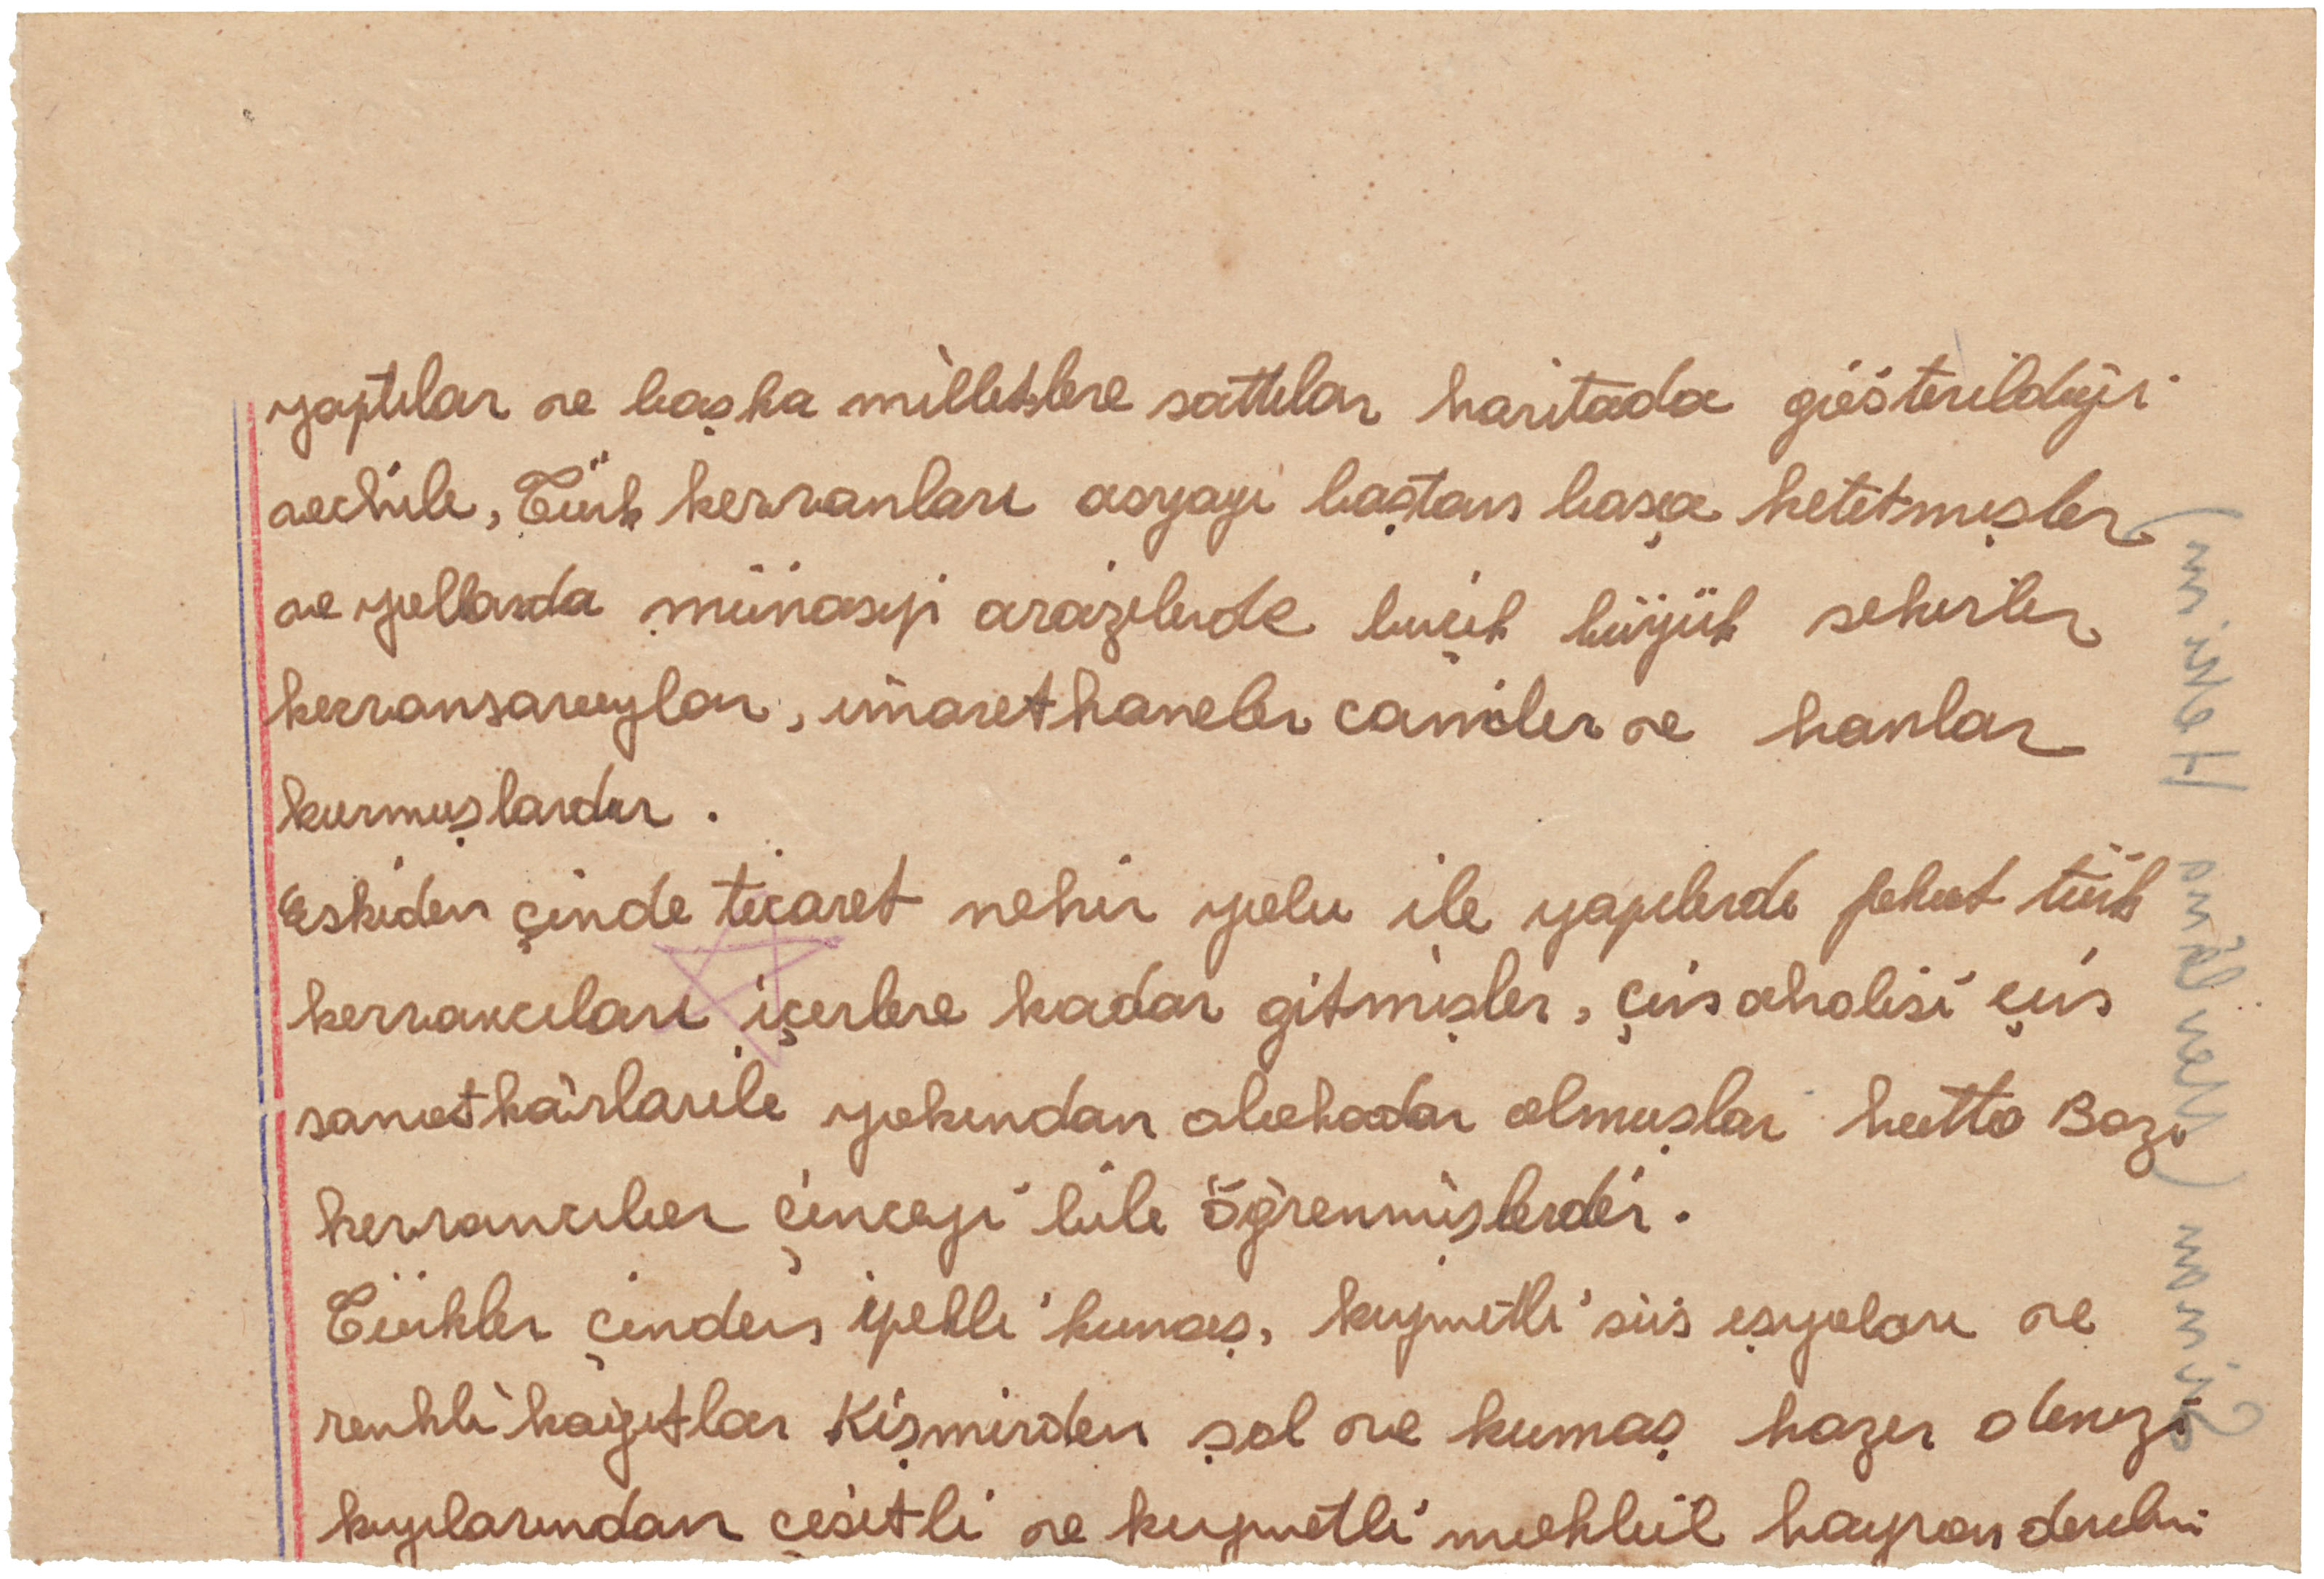 yaptılar ve başka milletlere sattılar haritada gösterildiği
vechile, Türk kervanları asyayi baştan başa ketetmişler
ve yollarda münasip arazilerde büyük büyük şehirler
kervansaraylar, imarethaneler camiler ve hanlar
kurmuşlardır.
Eskiden çinde ticaret nehir yolu ile yapılırdı fakat türk
kervancıları içerlere kadar gitmişler, çin ahalisi çin
sanatkârlarile yakından alakadar olmuşlar hatta Bazı
kervancılar çinceyi bile öğrenmişlerdir.
Türkler çinden ipekli kumaş, kıymetli süs eşyaları ve
renkli kağıtlar Kişmirden şal ve kumaş hazer denizi
kıyılarından çeşitli ve kıymetli mahlül hayvan derileri